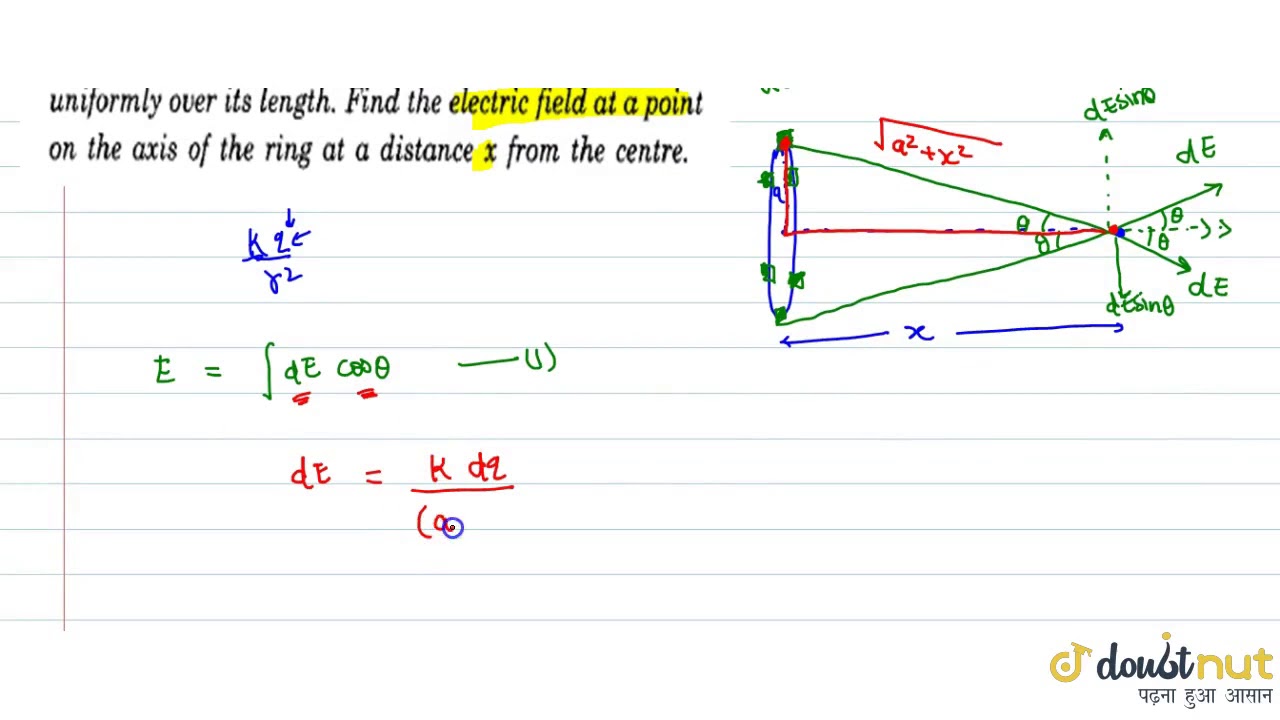 uniformly over its length. Find the electric field at a point
on the axis of the ring at a distance x from the centre.
K q
r2
E = ∫ dE cosθ —(1)
dE = K dq
(a
√a²+x²
a
θ
θ
dE sinθ
dE
θ
θ
dE
dE sinθ
x
doubtnut
पढ़ना हुआ आसान